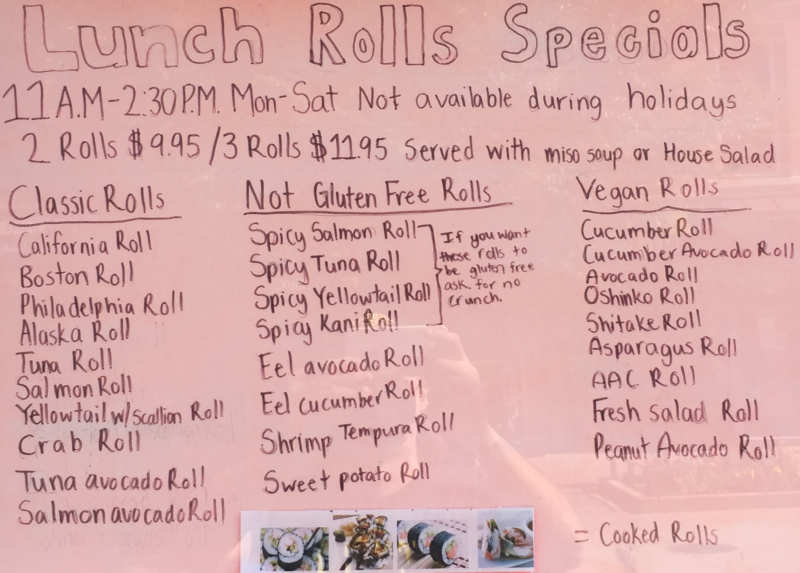 Lunch Rolls Specials
11 A.M-2:30P.M. Mon-Sat Not available during holidays
2 Rolls $9.95 /3 Rolls $11.95 Served with miso soup or House Salad
Classic Rolls
California Roll
Boston Roll
Philadelphia Roll
Alaska Roll
Tuna Roll
Salmon Roll
Yellowtail w/scallion Roll
Crab Roll
Tuna avocado Roll
Salmon avocado Roll
Not Gluten Free Rolls
Spicy Salmon Roll
Spicy Tuna Roll
Spicy Yellowtail Roll
Spicy Kani Roll
If you want
these rolls to
be gluten free
ask for no
crunch.
Eel avocado Roll
Eel cucumber Roll
Shrimp Tempura Roll
Sweet potato Roll
Vegan Rolls
Cucumber Roll
Cucumber Avocado Roll
Avocado Roll
Oshinko Roll
Shitake Roll
Asparagus Roll
AAC Roll
Fresh salad Roll
Peanut Avocado Roll
= Cooked Rolls